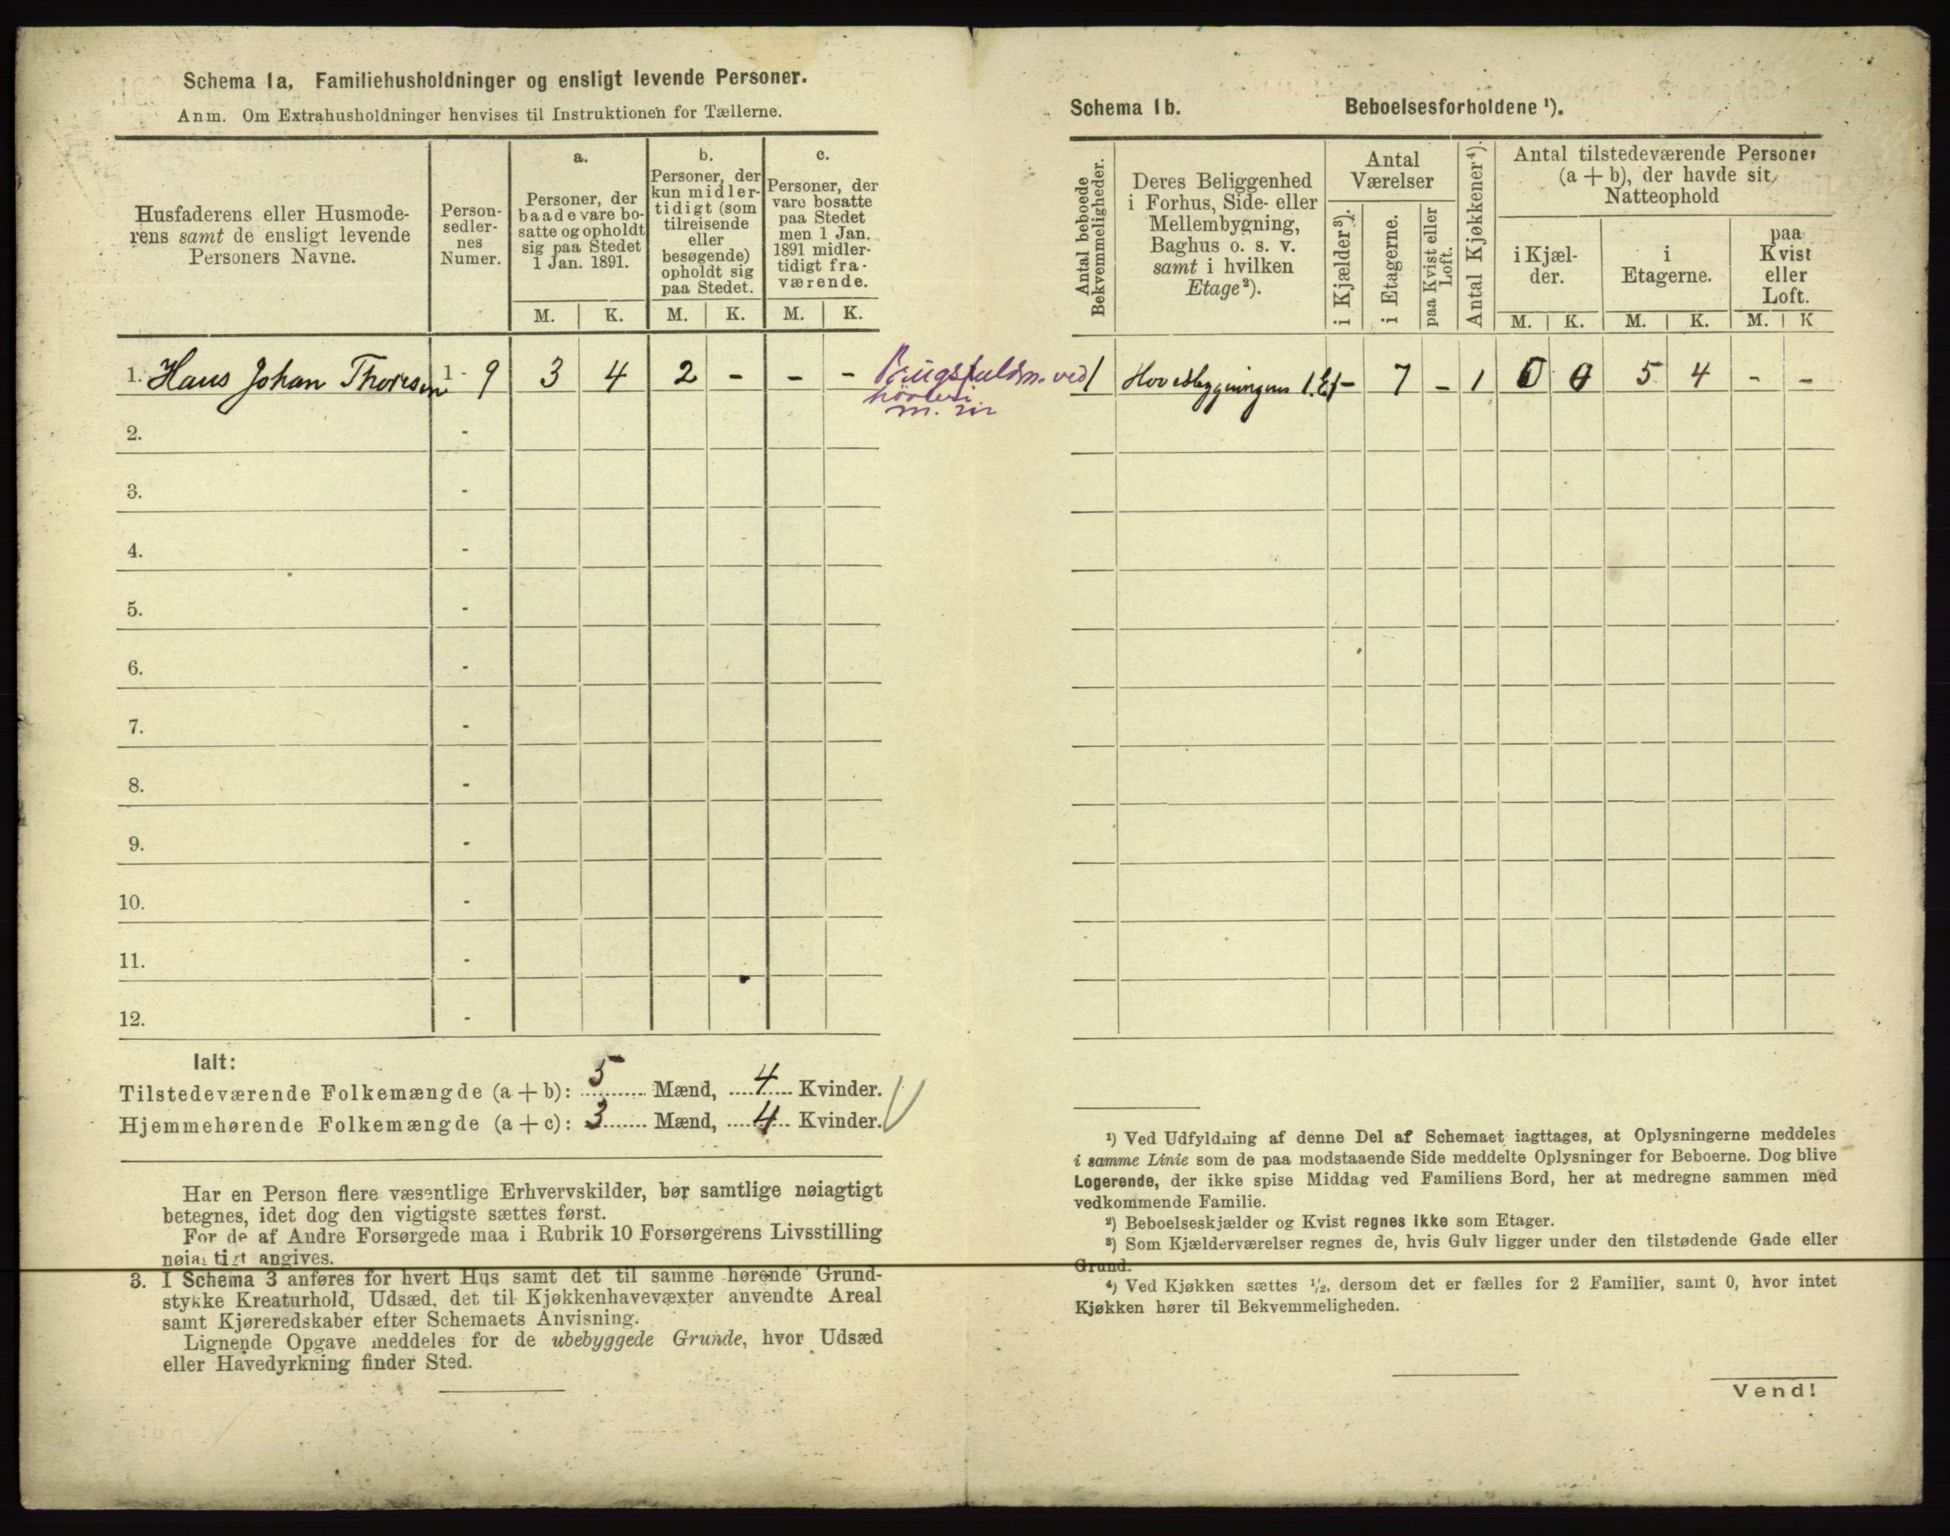 Schema 1a, Familiehusholdninger og ensligt levende Personer.
Anm. Om Extrahusholdninger henvises til Instruktionen for Tællerne.
Husfaderens eller Husmode-
rens samt de ensligt levende
Personers Navne.
Person-
sedler-
nes
Numer.
a.
Personer, der
baade vare bo-
satte og opholdt
sig paa Stedet
1 Jan. 1891.
b.
Personer, der
kun midler-
tidigt (som
tilreisende
eller
besøgende)
opholdt sig
paa Stedet.
c.
Personer, der
vare bosatte
paa Stedet
men 1 Jan.
1891 midler-
tidigt fra-
værende.
M. K. M. K. M. K.
1. Hans Johan Thoresen 1 - 9 3 4 2 - - -
2. -
3. -
4. -
5. -
6. -
7. -
8. -
9. -
10. -
11. -
12. -
Ialt:
Tilstedeværende Folkemængde (a + b): 5 Mænd, 4 Kvinder.
Hjemmehørende Folkemængde (a + c): 3 Mænd, 4 Kvinder.
Har en Person flere væsentlige Erhvervskilder, bør samtlige nøiagtigt
betegnes, idet dog den vigtigste sættes først.
For de af Andre Forsørgede maa i Rubrik 10 Forsørgerens Livsstilling
nøiagtigt angives.
3. I Schema 3 anføres for hvert Hus samt det til samme hørende Grund-
stykke Kreaturhold, Udsæd, det til Kjøkkenhavevæxter anvendte Areal
samt Kjøreredskaber efter Schemaets Anvisning.
Lignende Opgave meddeles for de ubebyggede Grunde, hvor Udsæd
eller Havedyrkning finder Sted.
Schema 1b. Beboelsesforholdene ¹).
Antal beboede
Bekvemmeligheder.
Deres Beliggenhed
i Forhus, Side- eller
Mellembygning,
Baghus o. s. v.
samt i hvilken
Etage²).
Antal
Værelser
i Kjælder³).
i Etagerne.
paa Kvist eller
Loft.
Antal Kjøkkener⁴).
Antal tilstedeværende Personer
(a + b), der havde sit
Natteophold
i Kjæl-
der.
i
Etagerne.
paa
Kvist
eller
Loft.
M. K. M. K. M. K
1 Hovedbygningen 1. Et - 7 - 1 0 0 5 4 - -
¹) Ved Udfyldning af denne Del af Schemaet iagttages, at Oplysningerne meddeles
i samme Linie som de paa modstaaende Side meddelte Oplysninger for Beboerne. Dog blive
Logerende, der ikke spise Middag ved Familiens Bord, her at medregne sammen med
vedkommende Familie.
²) Beboelseskjælder og Kvist regnes ikke som Etager.
³) Som Kjælderværelser regnes de, hvis Gulv ligger under den tilstødende Gade eller
Grund.
⁴) Ved Kjøkken sættes ½, dersom det er fælles for 2 Familier, samt 0, hvor intet
Kjøkken hører til Bekvemmeligheden.
Vend!